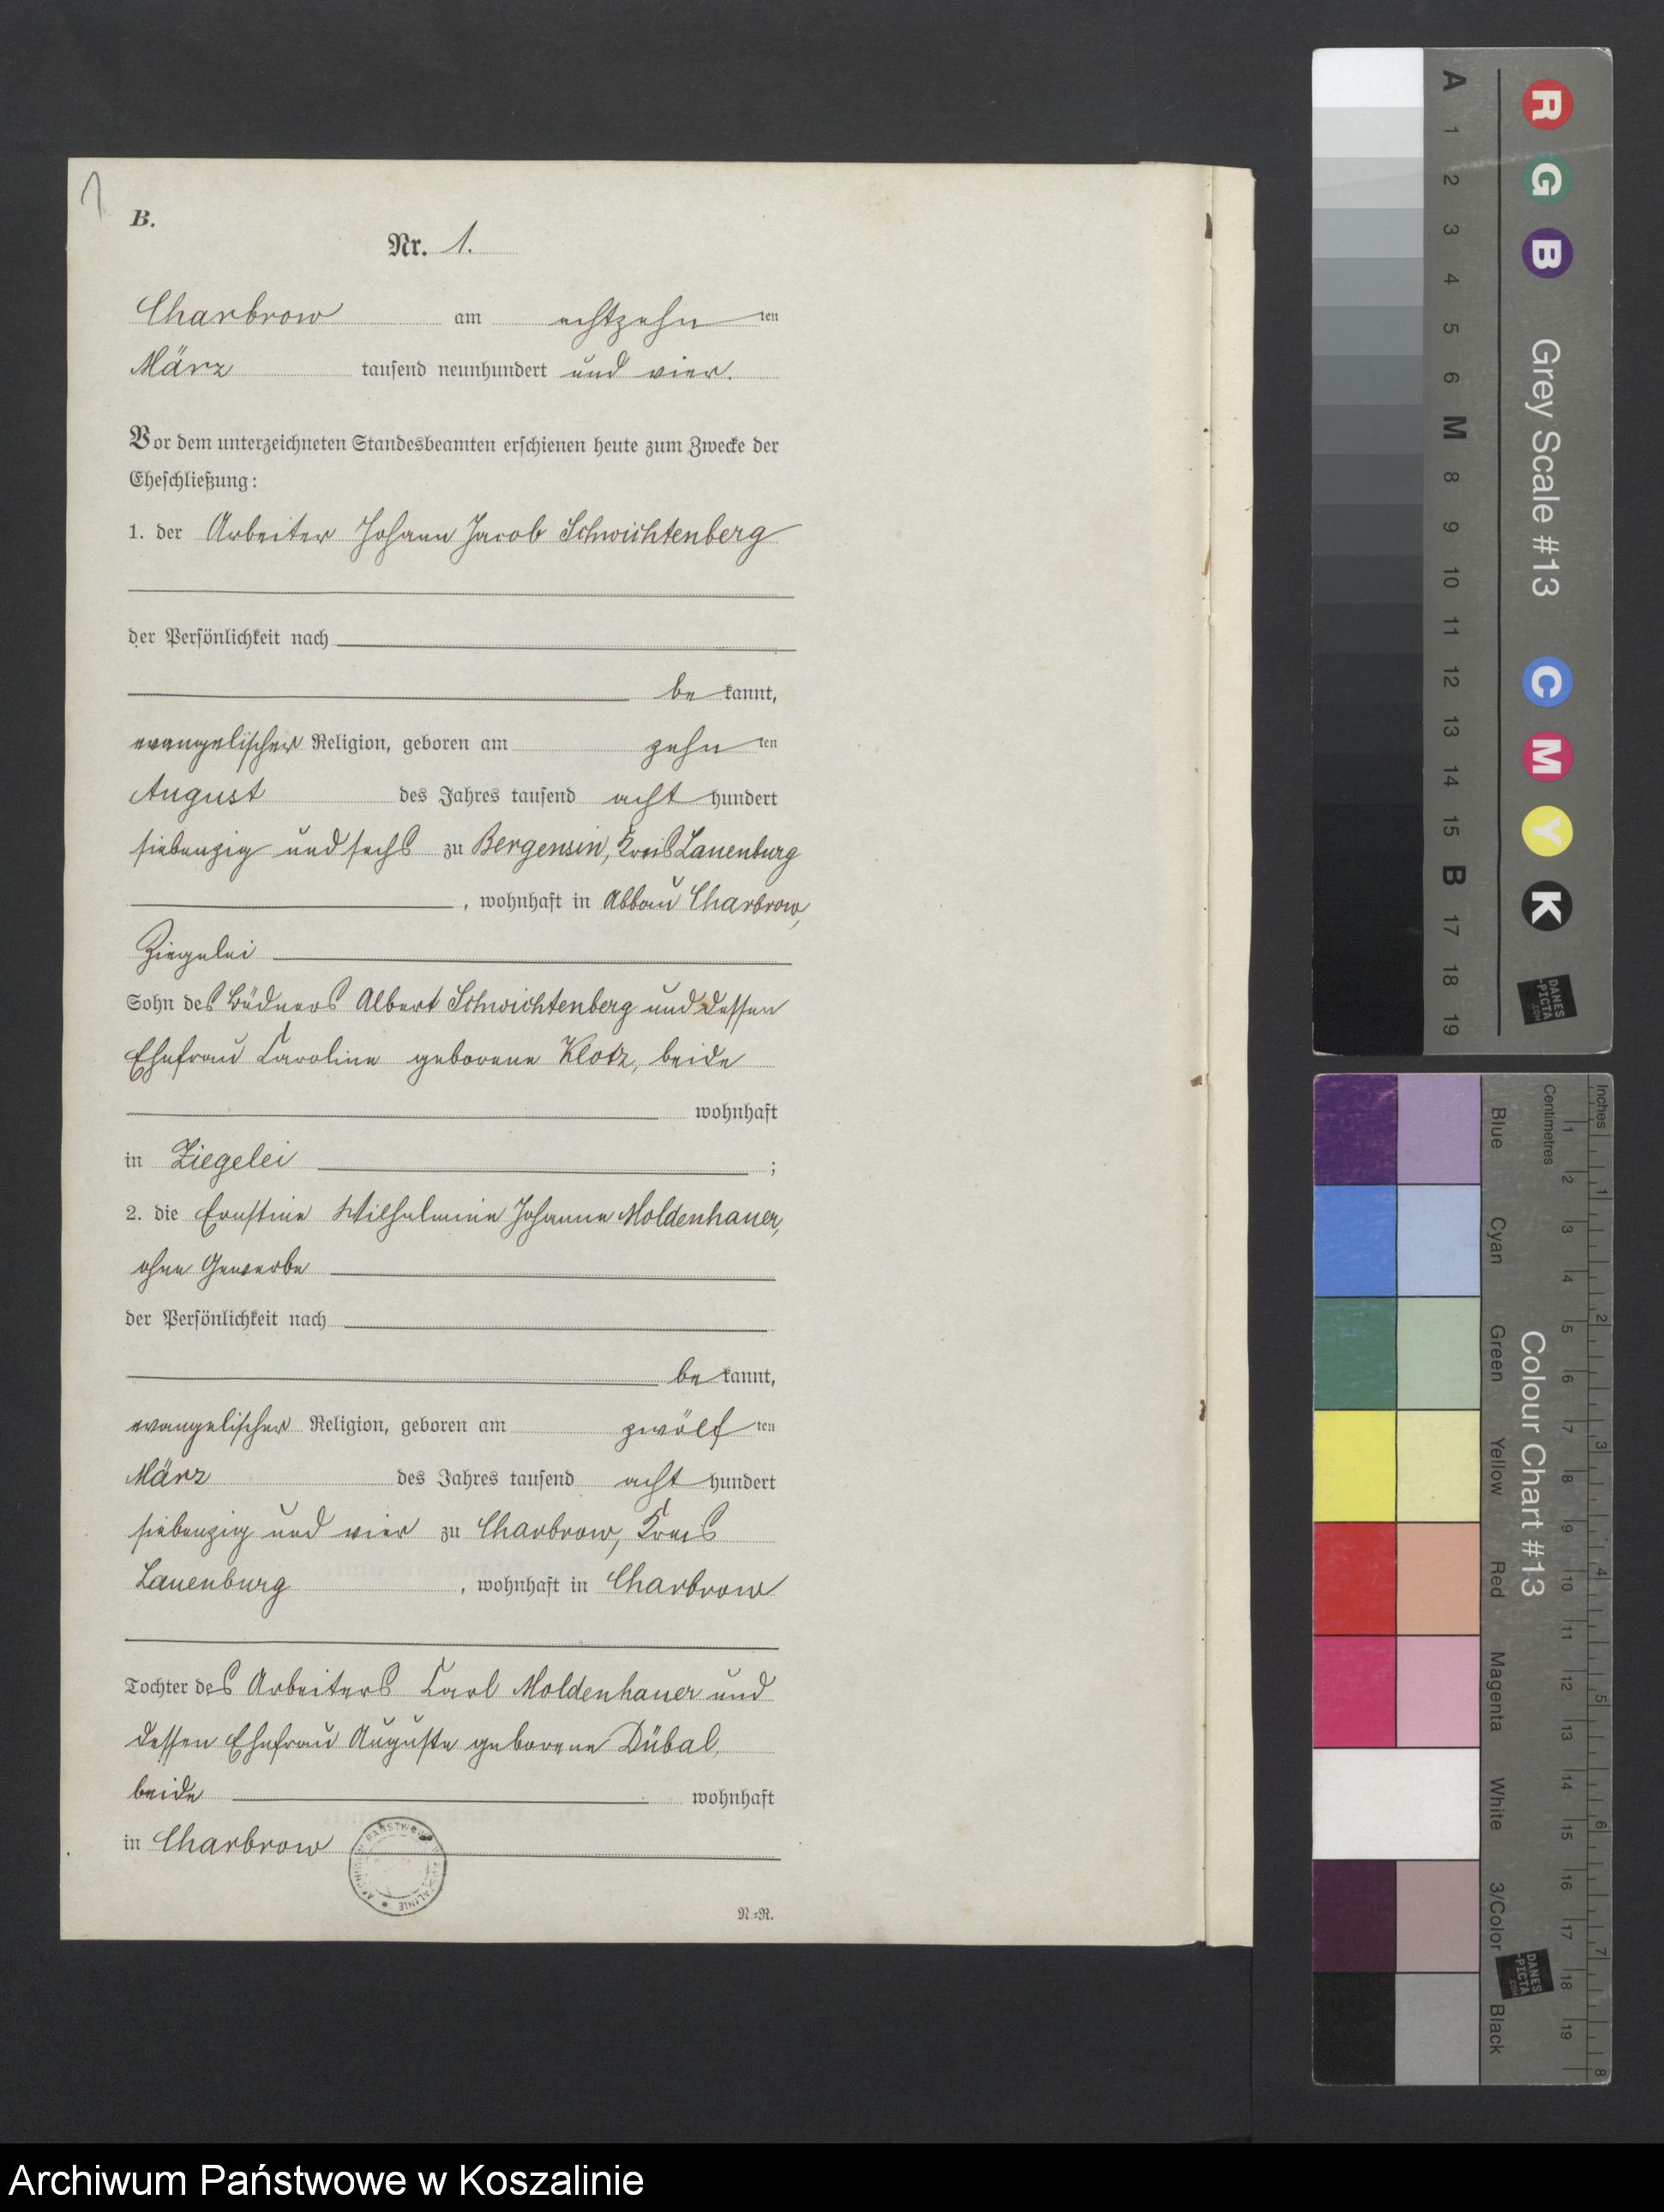 1
B.
Nr. 1.
Charbrow am achtzehn ten
März tausend neunhundert und vier.
Vor dem unterzeichneten Standesbeamten erschienen heute zum Zwecke der
Eheschließung:
1. der Arbeiter Johann Jacob Schwichtenberg
der Persönlichkeit nach
be kannt,
evangelischer Religion, geboren am zehn ten
August des Jahres tausend acht hundert
siebenzig und sechs zu Bergensin, Kreis Lauenburg
, wohnhaft in Abbau Charbrow,
Ziegelei
Sohn des Büdners Albert Schwichtenberg und dessen
Ehefrau Caroline geborene Klotz, beide
wohnhaft
in Ziegelei ;
2. die Ernstine Wilhelmine Johanne Moldenhauer,
ohne Gewerbe
der Persönlichkeit nach
be kannt,
evangelischer Religion, geboren am zwölf ten
März des Jahres tausend acht hundert
siebenzig und vier zu Charbrow, Kreis
Lauenburg , wohnhaft in Charbrow
Tochter des Arbeiters Carl Moldenhauer und
dessen Ehefrau Auguste geborene Dübal,
beide wohnhaft
in Charbrow
N.=N.
A 1 2 3 4 5 6 M 8 9 10 11 12 13 14 15 B 17 18 19
R G B Grey Scale #13 C M Y K
DANES
-PICTA
.COM
Blue Cyan Green Yellow Red Magenta White 3/Color Black
Colour Chart #13
DANES
-PICTA
.COM
Centimetres 1 2 3 4 5 6 7 8 9 10 11 12 13 14 15 16 17 18 19
Inches 1 2 3 4 5 6 7 8
Archiwum Państwowe w Koszalinie